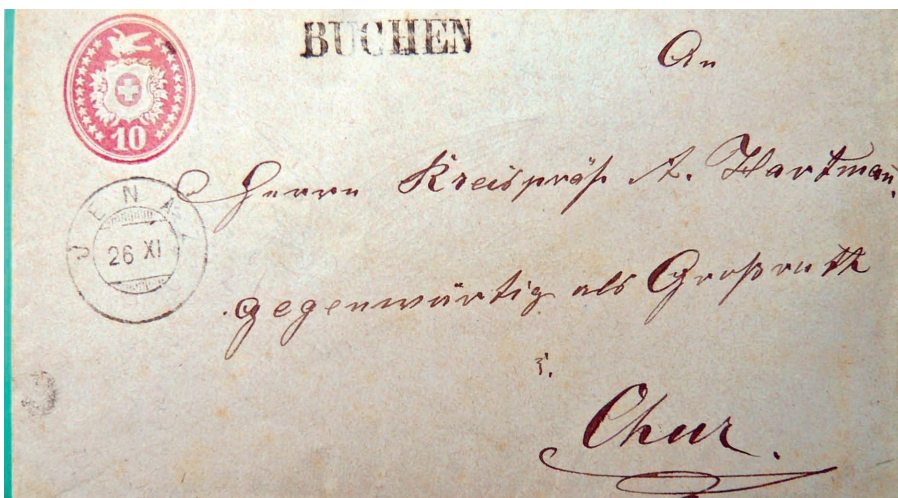 BUCHEN
10
An
JENAZ
26 XI
Herrn Kreispräs A. Hartmañ.
gegenwärtig als Großrath
z.
Chur.